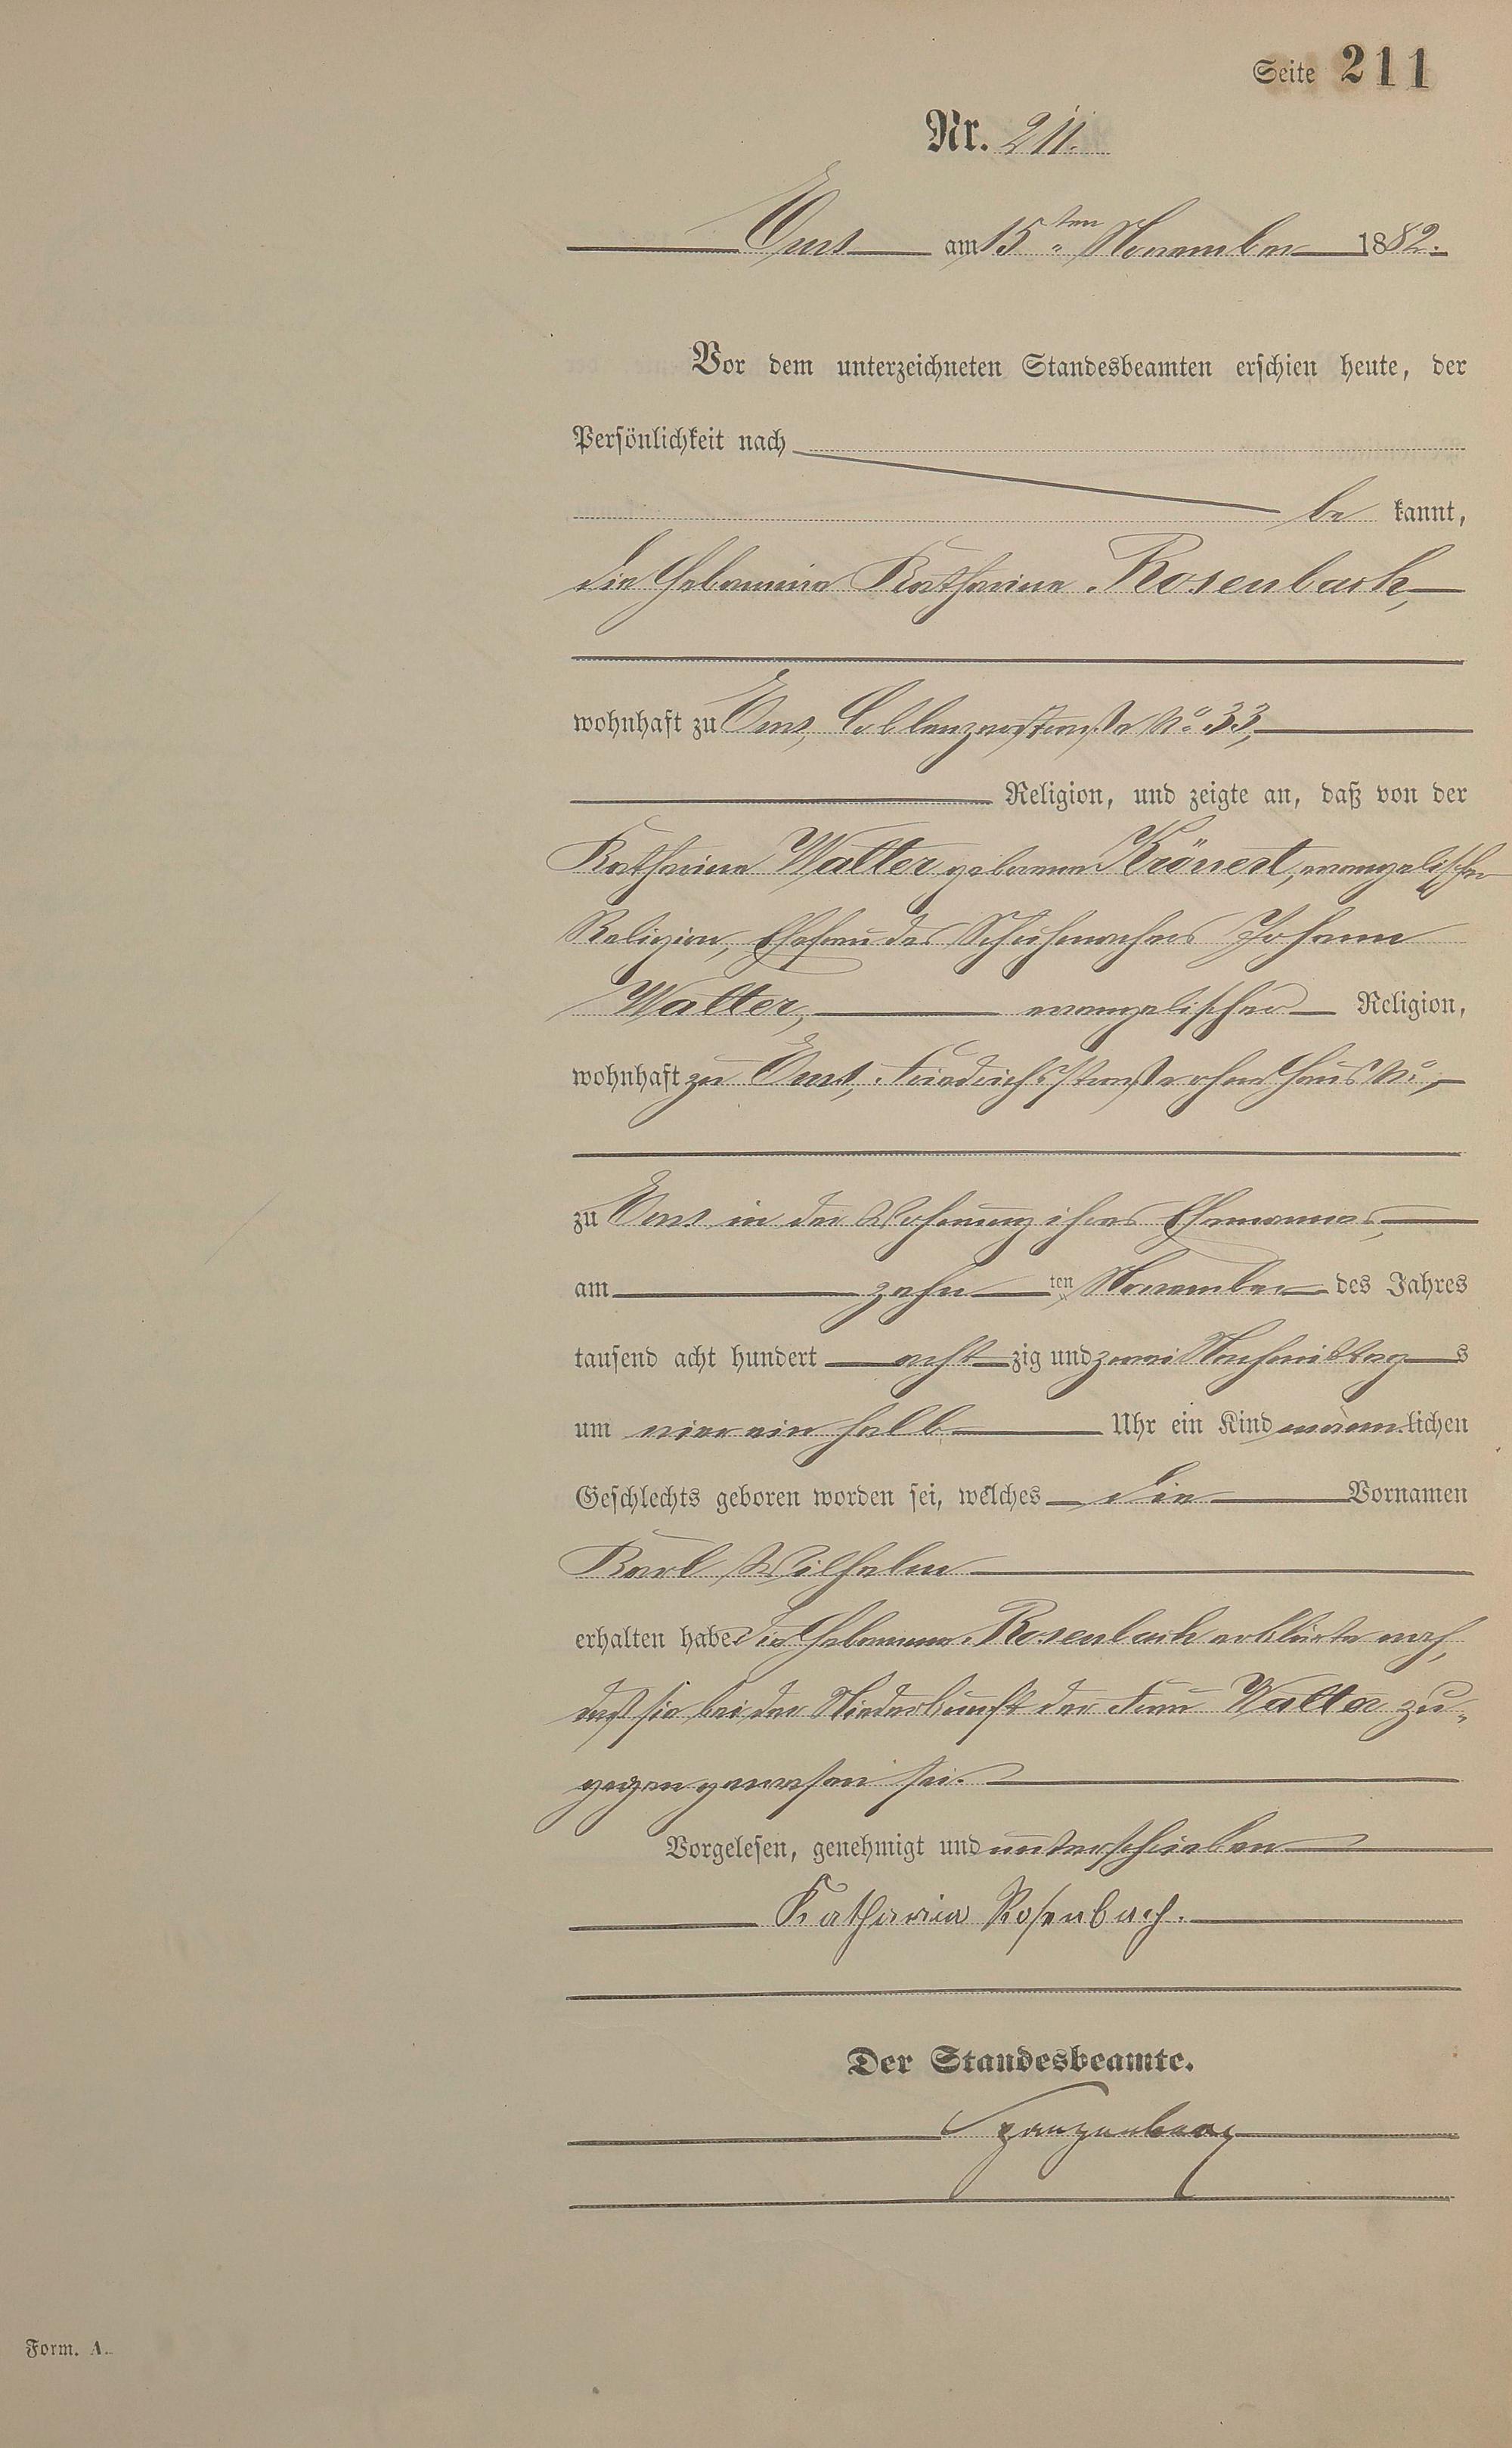 Seite 211
Nr. 211.
Ems am 15ten November 1882.
Vor dem unterzeichneten Standesbeamten erschien heute, der
Persönlichkeit nach
be kannt,
die Hebamme Katharine Rosenbach,
wohnhaft zu Ems, Coblenzerstraße No. 33,
Religion, und zeigte an, daß von der
Katharine Walter geborenen Krönert, evangelischer
Religion, Ehefrau des Schuhmachers Johann
Walter, evangelischer Religion,
wohnhaft zu Ems, Friedrichsstraße ohne Haus No.,
zu Ems in der Wohnung ihres Ehemannes,
am zehn ten November des Jahres
tausend acht hundert acht zig und zwei Nachmittag s
um vier ein halb Uhr ein Kind männ lichen
Geschlechts geboren worden sei, welches die Vornamen
Karl Wilhelm
erhalten habe. Die Hebamme Rosenbach erklärte noch,
daß sie bei der Niederkunft der Frau Walter zu-
gegen gewesen sei.
Vorgelesen, genehmigt und unterschrieben
Katharina Rosenbach.
Der Standesbeamte.
Spangenberg
Form. A.